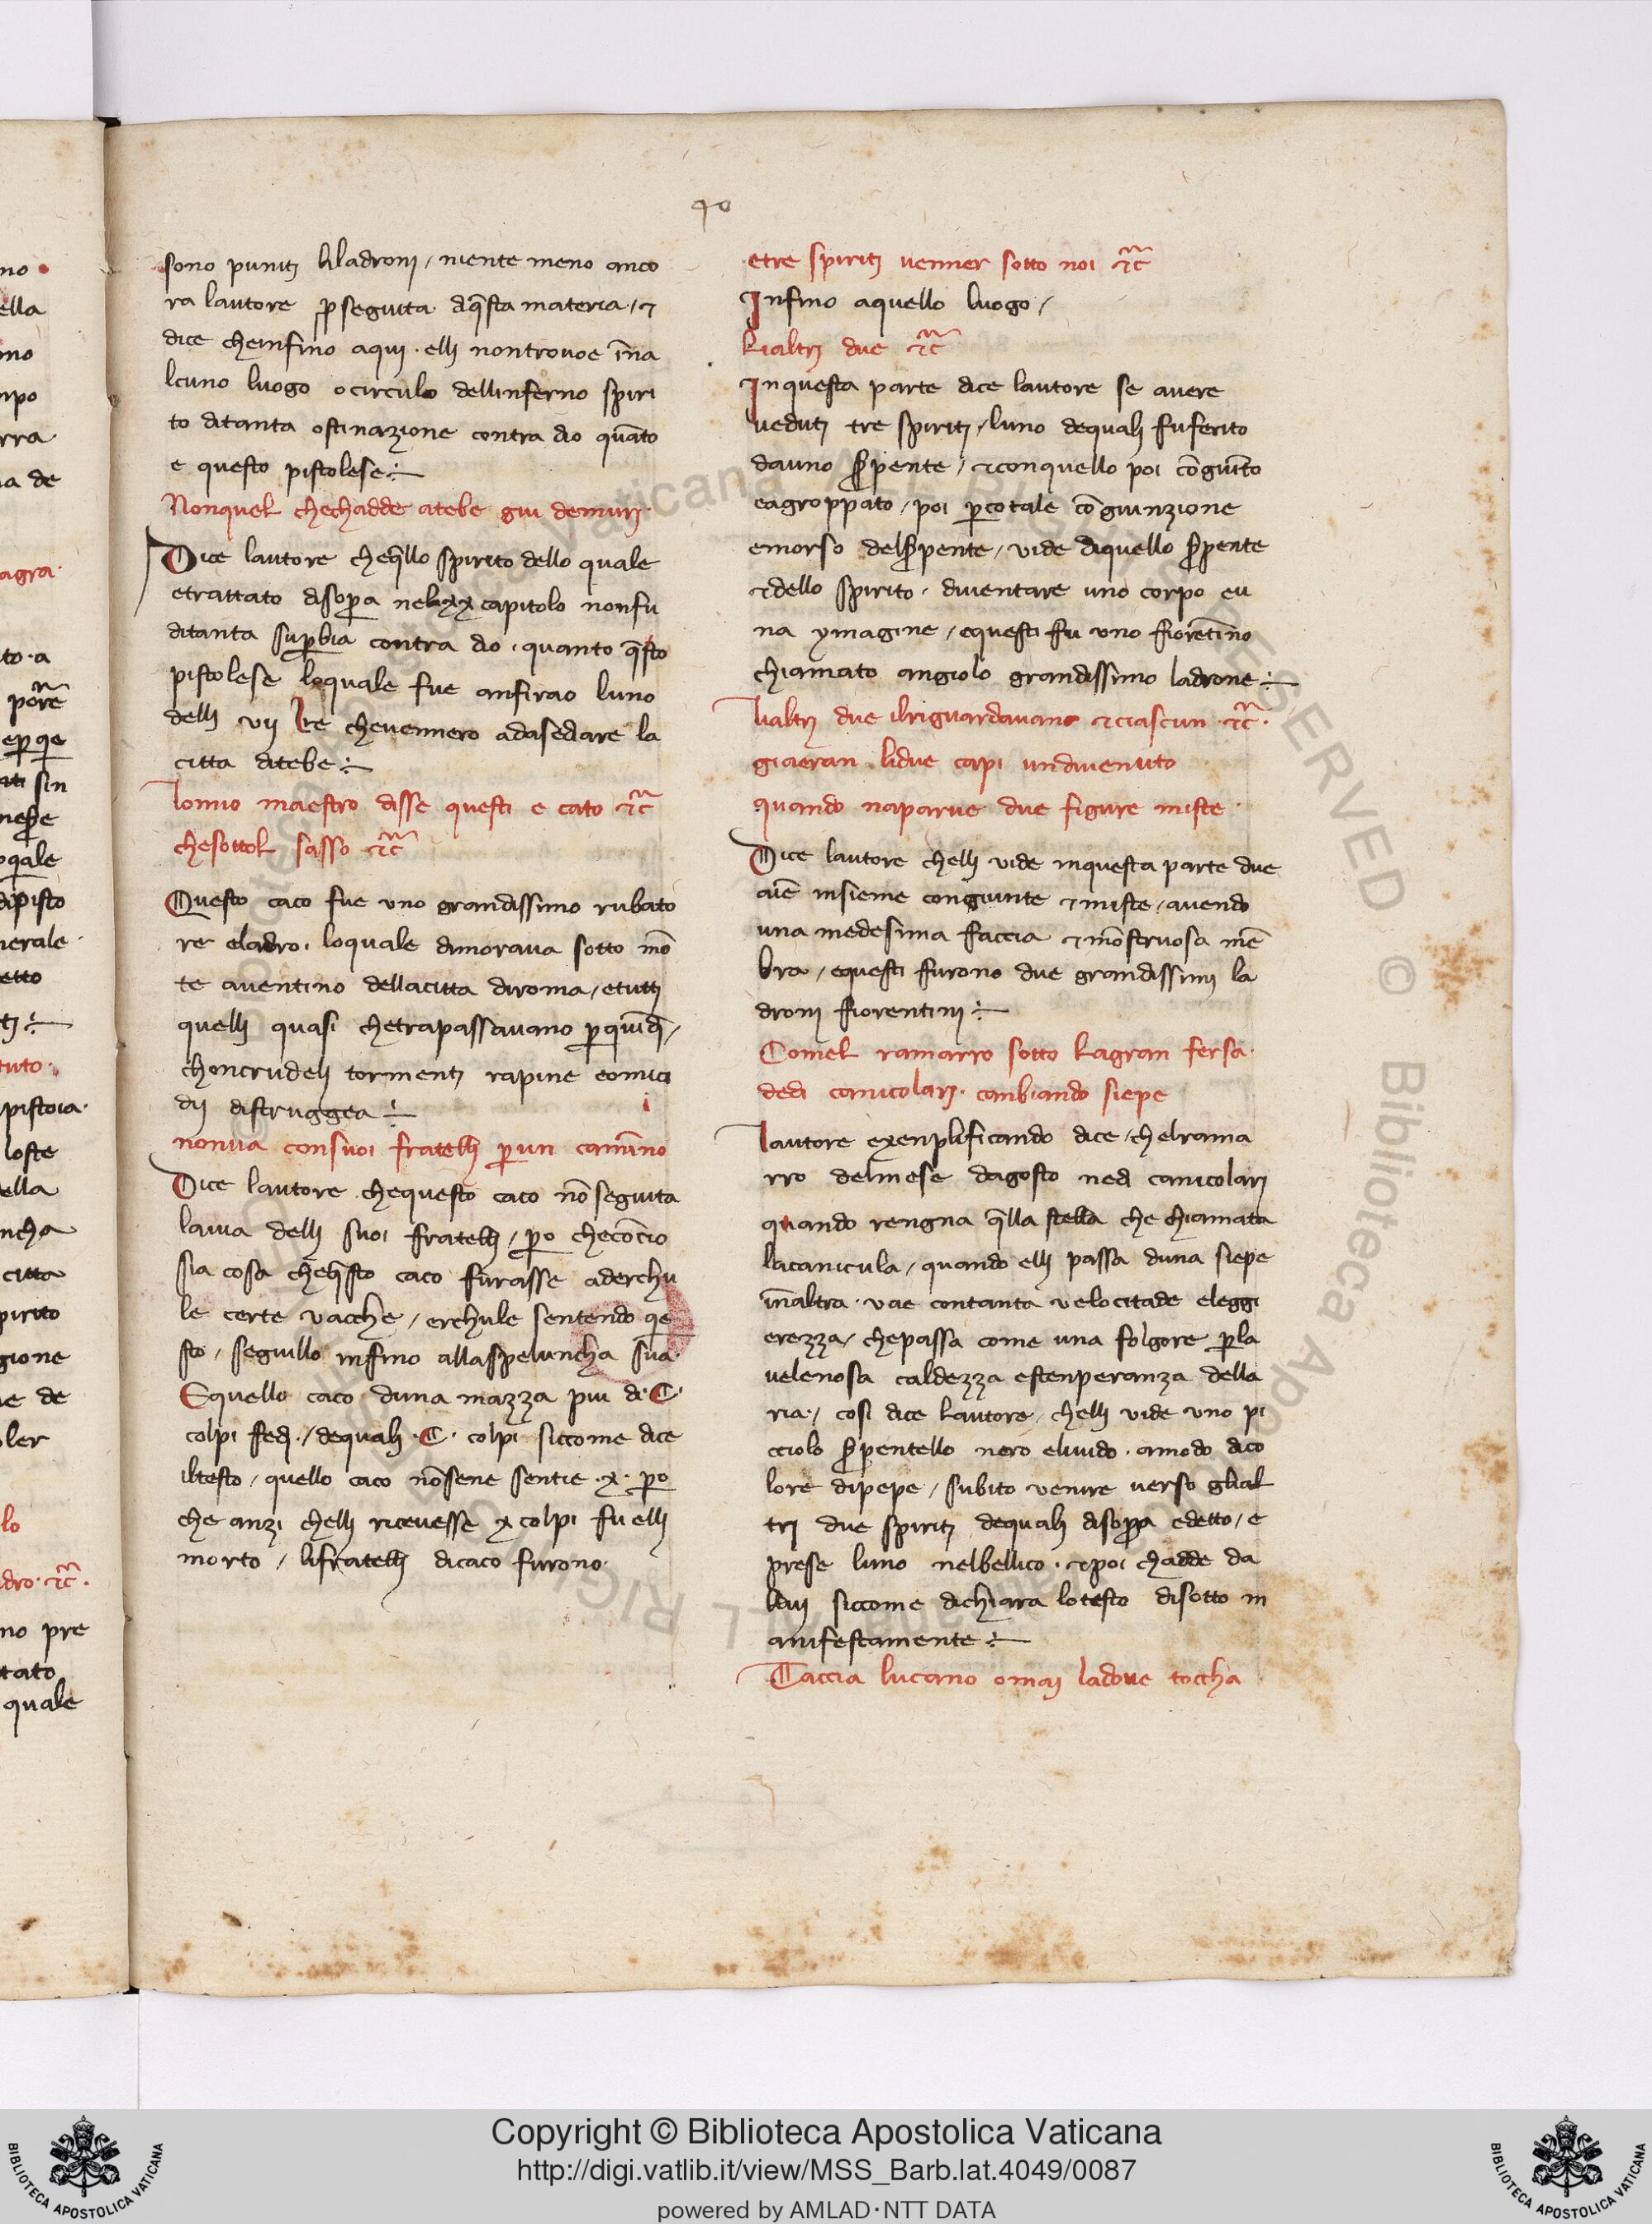 40
sono puniti liladroni / niente meno anco
ra lautore p̱seguita dq̄sta materia / ⁊
dice cheinfino aqui · elli nontrovoe īna
lcuno luogo ocirculo dellinferno spiri
to ditanta ostinazione contra dio quāto
e questo pistolese ÷
Nonquel chechadde atebe giu demuri ·
Dice lautore cheq̄llo spirito dello quale
etrattato disop̱a nelxx capitolo nonfu
ditanta sup̱bia contra dio · quanto q̄sto
pistolese loquale fue anfirao luno
delli vij Ire chevennero adasediare la
citta ditebe ÷
lomio maestro disse questi e cato ⁊c̃
chesottol sasso ⁊c̃
Questo caco fue uno grandissimo rubato
re eladro · loquale dimorava sotto mō
te aventino dellacitta diroma / etutti
quelli quasi chetrapassavano p̱quīdi /
choncrudeli tormenti rapine eomici
dij distruggea ÷
nonva consuoi fratelli p̱un camīno
Dice lautore chequesto caco nōseguita
lavia delli suoi fratelli / p̱o checōcio
sia cosa cheq̄sto caco furasse aderchu
le certe vacche / erchule sentendo qe
sto / seguillo inffino allaspeluncha sua ·
Equello caco duna mazza piu di · C ·
colpi fedi · / dequali · C · colpi siccome dice
iltesto / quello caco nōsene sentie · x · p̱o
che anzi chelli ricevesse x colpi fu elli
morto / lifratelli dicaco furono ·
etre spiriti venner sotto noi ⁊c̃
Infino aquello luogo /
lialtri due ⁊c̃
Inquesta parte dice lautore se avere
veduti tre spiriti / luno dequali fuferito
dauno s̱pente / ⁊conquello poi cōgiūto
eagroppato / poi p̱cotale cōgiunzione
emorso dels̱pente / vide diquello s̱pente
⁊dello spirito · diventare uno corpo eu
na ymagine / equesti ffu uno fiorentīno
chiamato angiolo grandissimo ladrone ÷
lialtri due ilriguardavano ⁊ciascun ⁊c̃ ·
giaeran lidue capi undivenuto
quando naparve due figure miste ·
Dice lautore chelli vide inquesta parte due
aīe insieme congiunte ⁊miste / avendo
una medesima faccia ⁊mōstruosa mē
bra / equesti furono due grandissimi la
droni fiorentini ÷
Comel ramarro sotto lagran fersa ·
dedi canicolari · canbiando siepe
lautore exenplificando dice / chelrama
rro delmese dagosto nedi canicolari
quando rengna q̄lla stella che chiamata
lacanicula / quando elli passa duna siepe
inaltra · vae contanta velocitade eleggi
erezza / chepassa come una folgore p̱la
velenosa caldezza estenperanza della
ria · / cosi dice lautore / chelli vide uno pi
cciolo s̱pentello nero elivido · amodo dico
lore dipepe / subito venire verso glial
tri due spiriti dequali disop̱a edetto / e
prese luno nelbellico · ⁊poi chadde da
llui siccome dichiara lotesto disotto m
anifestamente ÷
Taccia lucano omai ladove toccha
Copyright © Biblioteca Apostolica Vaticana
http://digi.vatlib.it/view/MSS_Barb.lat.4049/0087
powered by AMLAD·NTT DATA
BIBLIOTECA APOSTOLICA VATICANA
BIBLIOTECA APOSTOLICA VATICANA